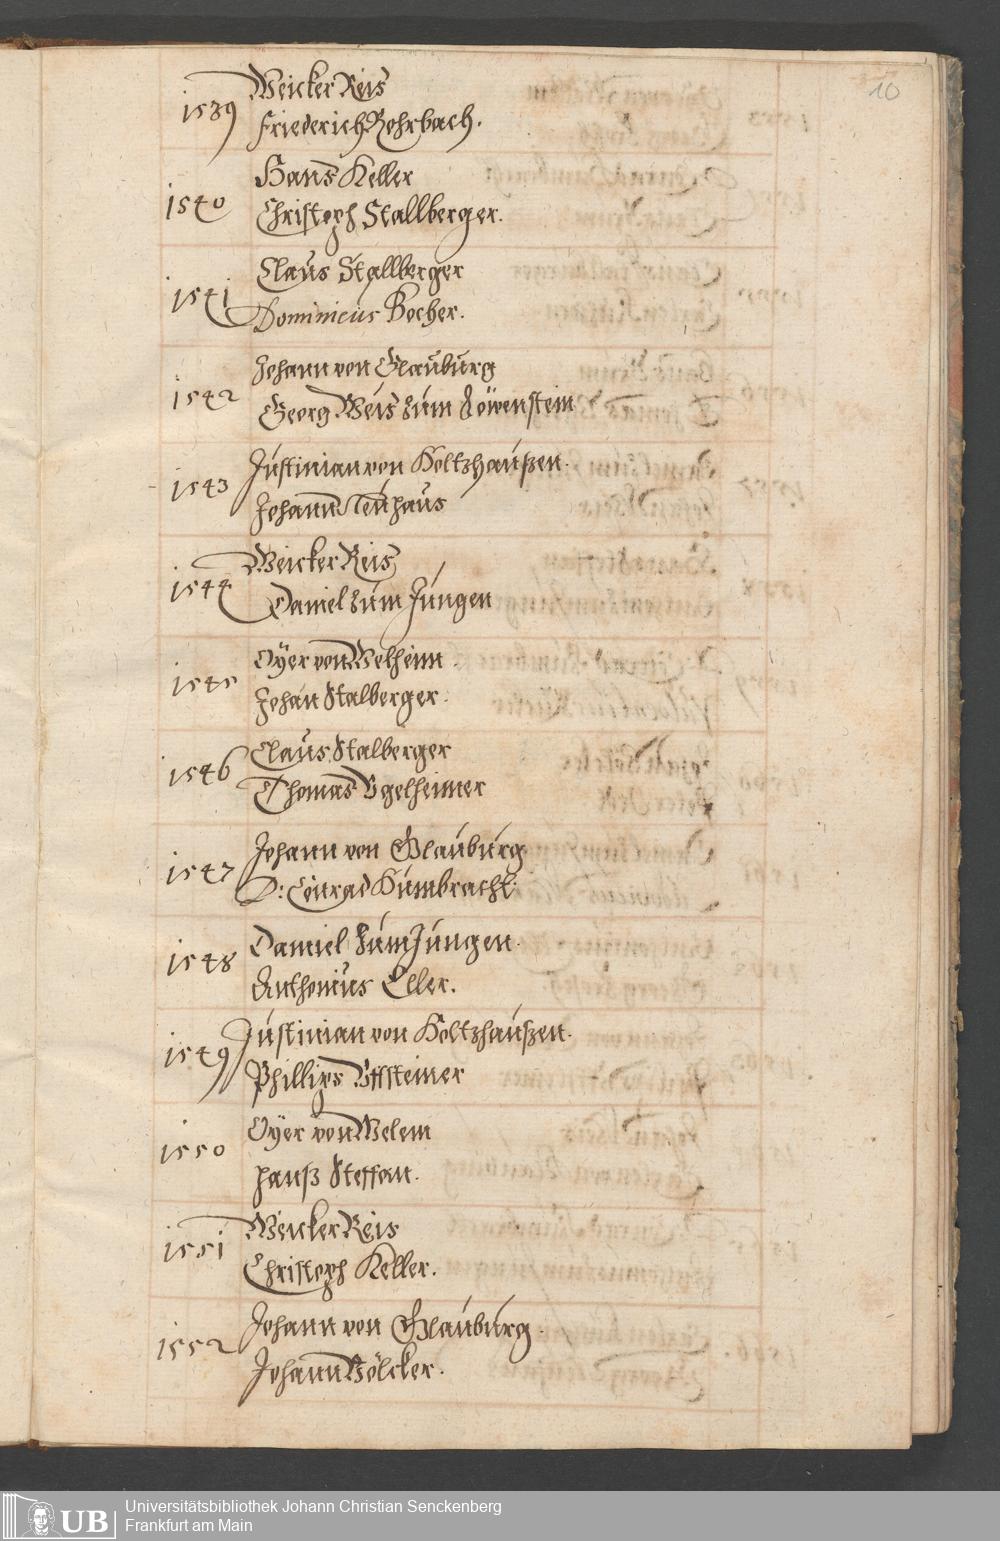 10
Weicker Reis
1539
Friederich Rohrbach.
Hans Keller
1540
Christoph Stallberger.
Claus Stallberger
1541
Dominicus Becher.
Johann von Glauburg
1542
Georg Weis zum Löwenstein
Justinian von Holtzhaußen.
1543
Johann Neuhaus
Weicker Reis
1544
Daniel zum Jungen
Oÿer von Melheim.
1545
Johan Stalberger.
Claus Stalberger
1546
Thomas Ugelheimer
Johann von Glauburg
1547
D: Conrad Humbracht.
Daniel zum Jungen.
1548
Anthonius Eller.
Justinian von Holtzhaußen.
1549
Phillips Uffsteiner
Oÿer von Melem
1550
Hanß Steffan.
Weicker Reis
1551
Christoph Keller.
Johann von Glauburg.
1552
Johann Völcker.
UB
Universitätsbibliothek Johann Christian Senckenberg
Frankfurt am Main